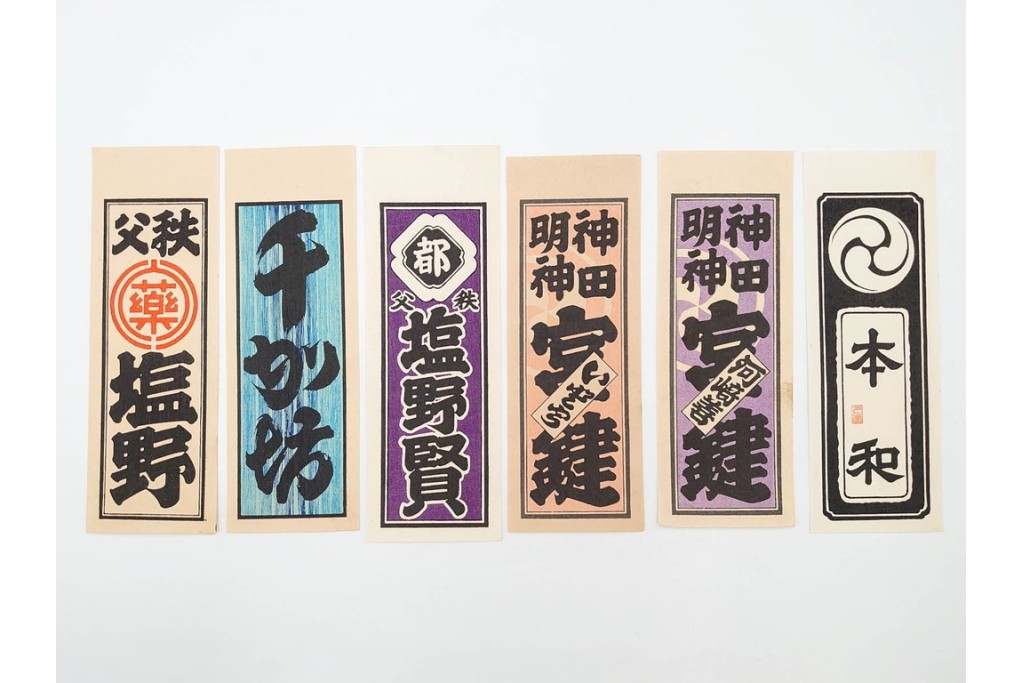 秩父
藥
塩野
千社坊
都
秩父
塩野賢
神田
明神
宮鍵
神田
明神
宮鍵
阿崎喜
本和